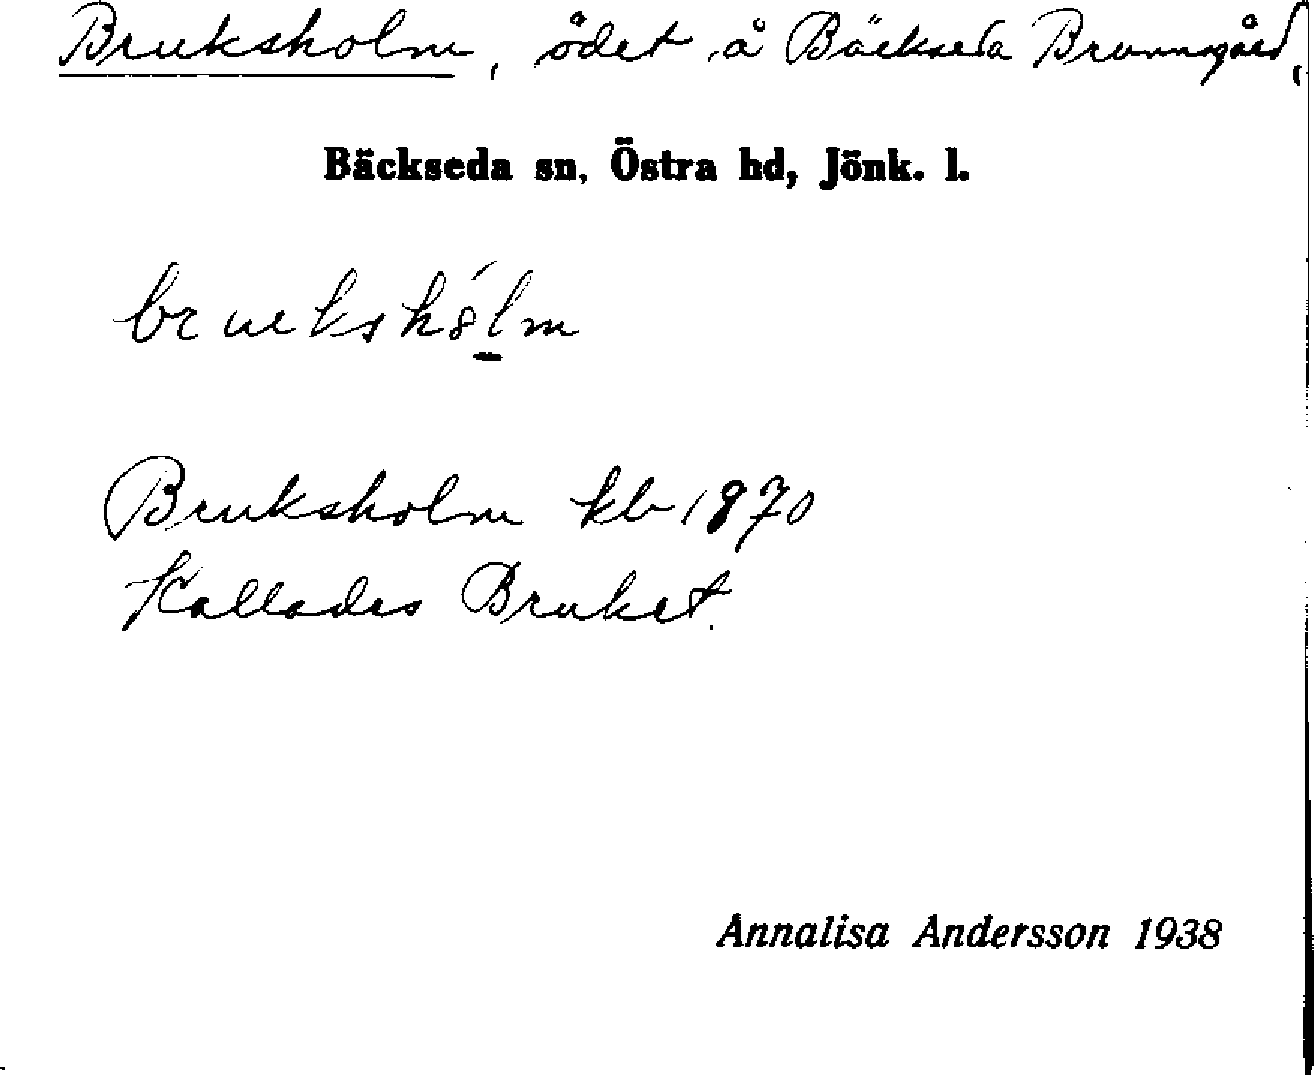 Bruksholm, ödet å Bäckseda Brunnsgård,
Bäckseda sn, Östra hd, Jönk. l.
Bruksholm kb 1870
Kallades Bruket.
Annalisa Andersson 1938